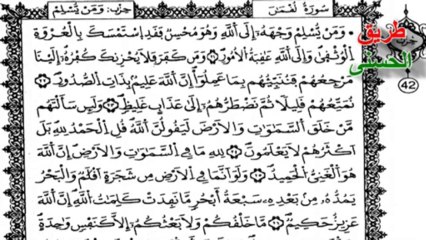 سورة لقمن
حزب: ومن يسلم
طريق
الحسنى
42
ومن يسلم وجهه إلى الله وهو محسن فقد استمسك بالعروة
الوثقى وإلى الله عقبة الأمور ومن كفر فلا يحزنك كفره إلينا
مرجعهم فننبئهم بما عملوا إن الله عليم بذات الصدور
نمتعهم قليلا ثم نضطرهم إلى عذاب غليظ ولين سألتهم
من خلق السموات والأرض ليقولن الله قل الحمد لله بل
أكثرهم لا يعلمون لله ما في السموات والأرض إن الله
هو الغني الحميد ولو أنما في الأرض من شجرة أقلم والبحر
يمده من بعده سبعة أبحر ما نفدت كلمات الله إن الله
عزيز حكيم ما خلقكم ولا بعثكم إلا كنفس واحدة